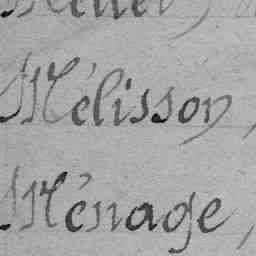 Mélisson,
Ménage,